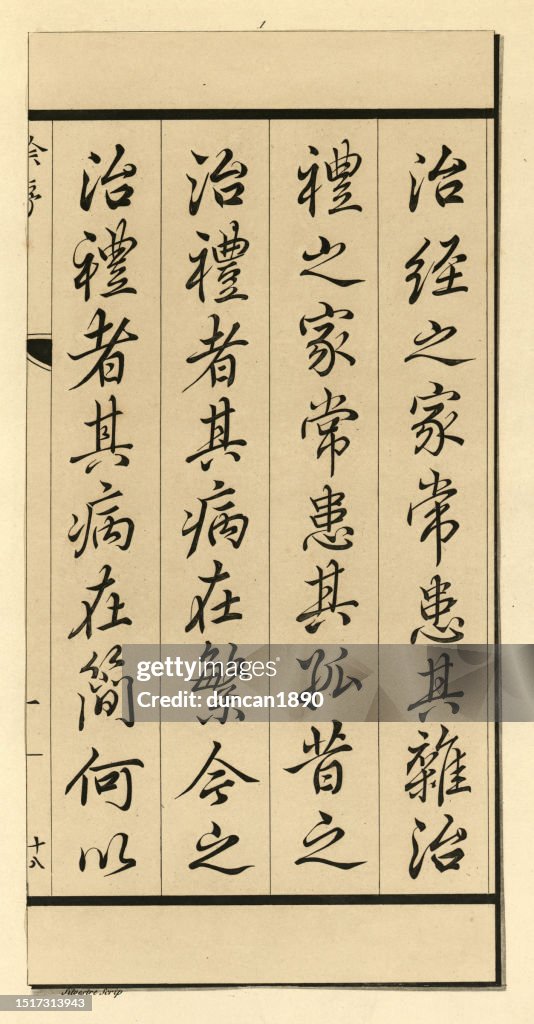 1
治經之家常患其雜治
禮之家常患其孤昔之
治禮者其病在繁今之
治禮者其病在簡何以
一
十八
gettyimages®
Credit: duncan1890
Silvestre Scrip
1517313943